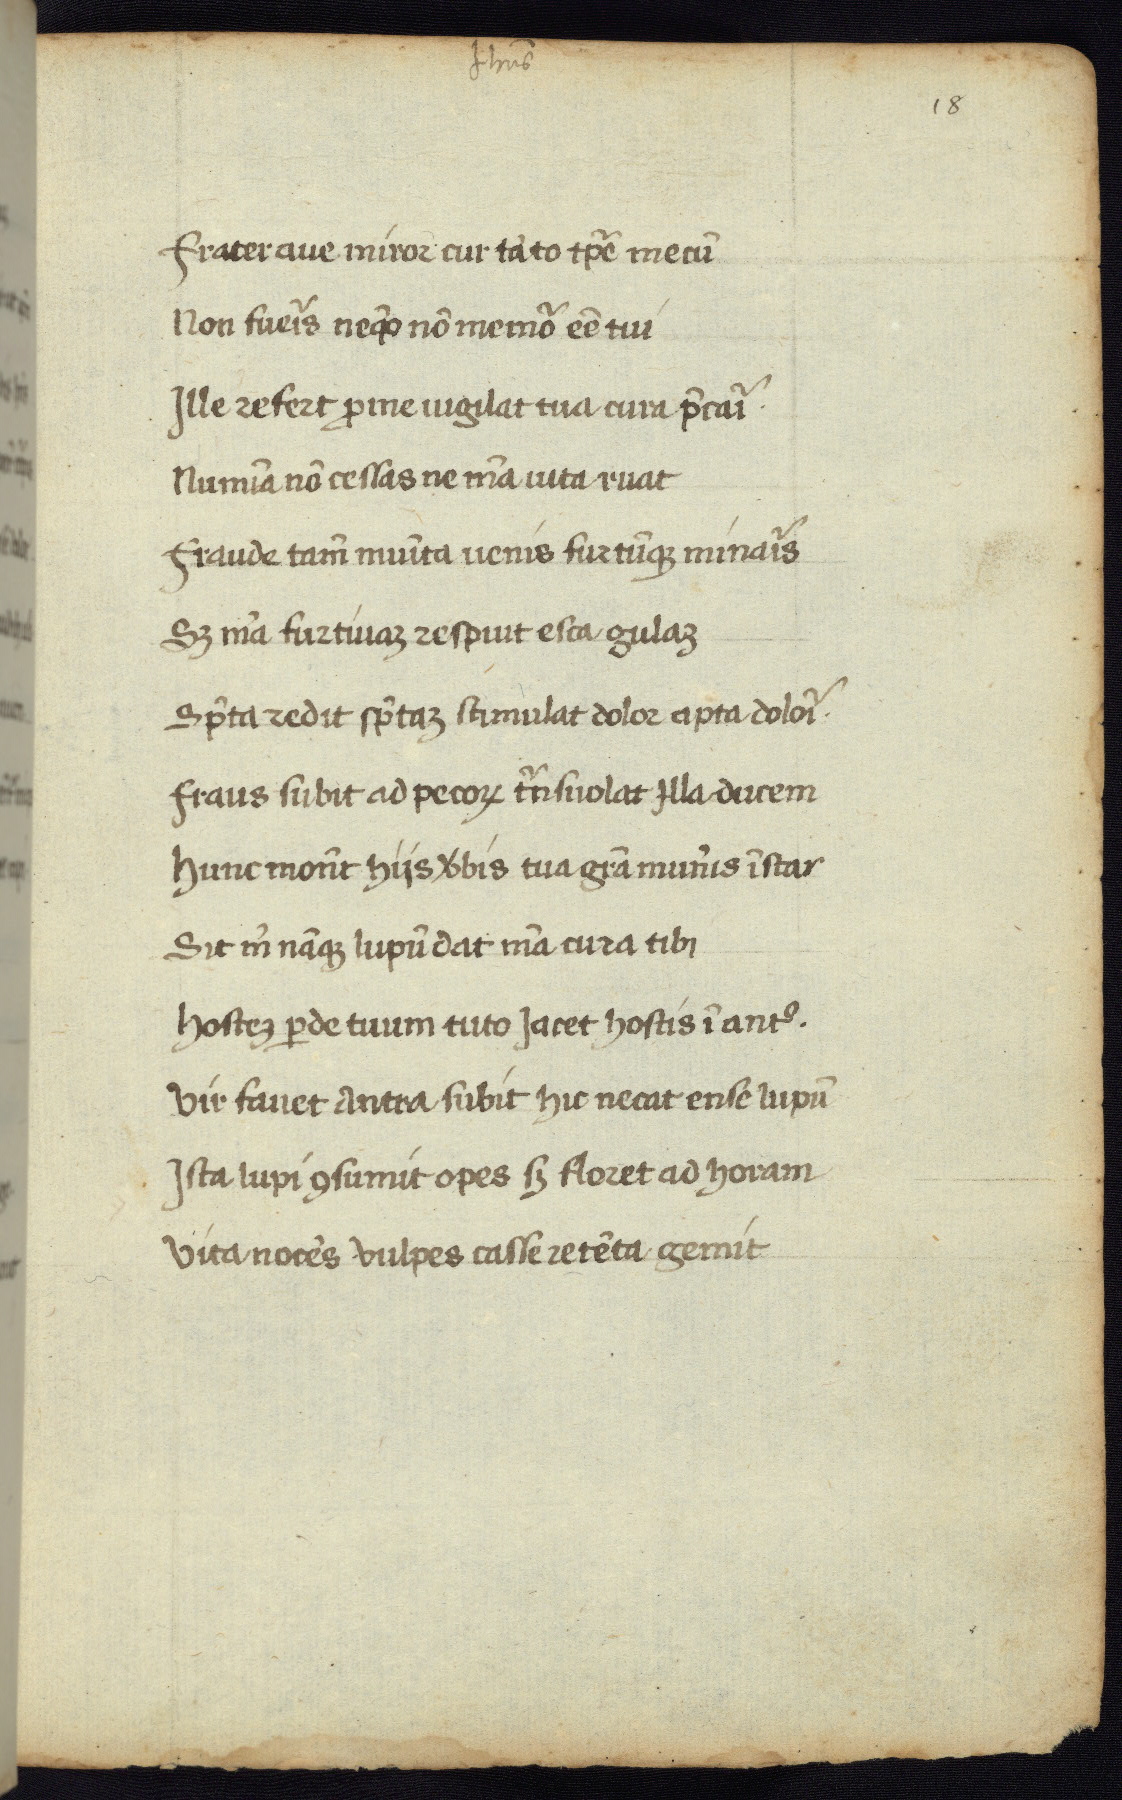 Jhũs
18
Frater aue miror cur tãto tp̃e mecũ
Non fueĩs neq̃o nõ memõ eẽ tui
Ille refert ꝑme uigilat tua cura p̃caĩ·
Numĩa nõ cessas ne m̃a uita ruat
Fraude tam̃ muñta uenis furtũqꝫ minaĩs
Sꝫ m̃a furtiuaꝫ respuit esca gulaꝫ
Sp̃ta redit sp̃taꝫ stimulat dolor apta doloĩ·
Fraus subit ad pecoꝝ t̃nsuolat Illa ducem
Hunc moñt hijs v̉bis tua grã muñis ĩstar
Sit m̃ nãqꝫ lupũ dat m̃a cura tibi
Hosteꝫ ꝑde tuum tuto Jacet hostis ĩ antº·
Vir fauet Antra subit hic necat ense lupũ
Ista lupi ꝯsumit opes sꝫ floret ad horam
Vita nocẽs vulpes casse retẽta gemit